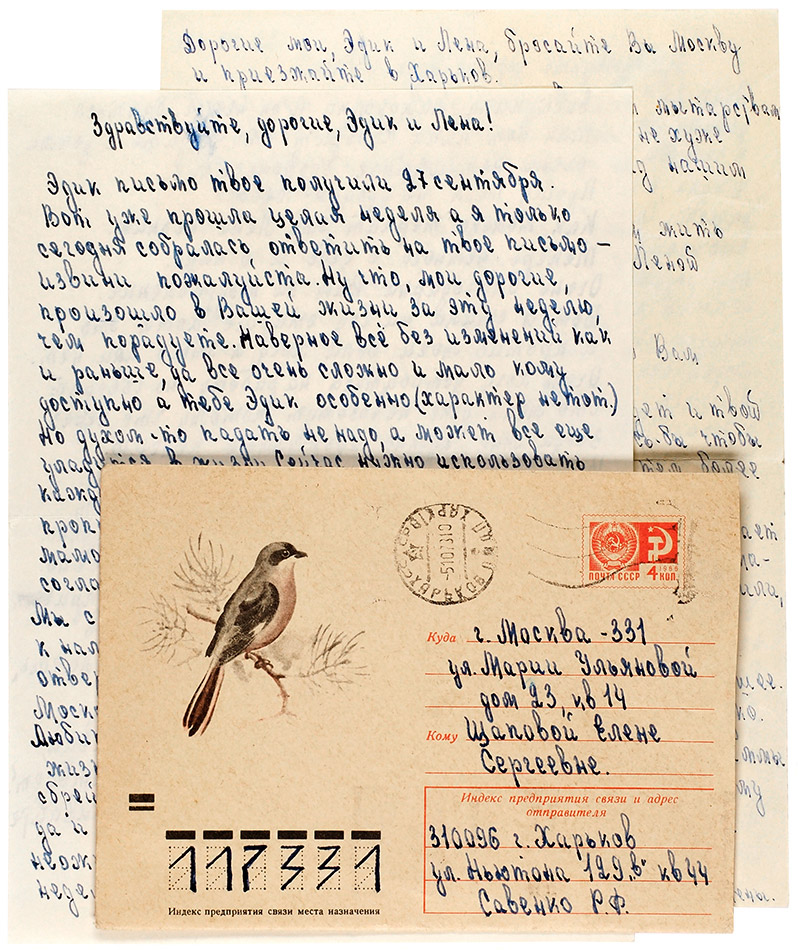 Дорогие мои, Эдик и Лена, бросайте Вы Москву
и приезжайте в Харьков.
мытарствам
не хуже
нашим
жить
Леной
Вам
и твой
бы чтобы
тем более
Здравствуйте, дорогие, Эдик и Лена!
Эдик письмо твое получили 27 сентября.
Вот уже прошла целая неделя а я только
сегодня собралась ответить на твое письмо –
извини пожалуйста. Ну что, мои дорогие,
произошло в Вашей жизни за эту неделю,
чем порадуете. Наверное всё без изменений как
и раньше, да все очень сложно и мало кому
доступно а тебе Эдик особенно (характер не тот.)
Но духом-то падать не надо, а может все еще
уладится в жизни. Сейчас нужно использовать
кажд
проп
мало
согла
Мы с
к нам
отве
Моск
Люби
жизн
сбрей
да и
неож
неде
ХАРЬКОВ
-5107310
ПОЧТА СССР
1966
4 КОП.
Куда г. Москва -331
ул. Марии Ульяновой
дом 23, кв 14
Кому Щаповой Елене
Сергеевне.
Индекс предприятия связи и адрес
отправителя
310096 г. Харьков
ул. Ньютона 129„в" кв 44
Савенко Р.Ф.
117331
Индекс предприятия связи места назначения